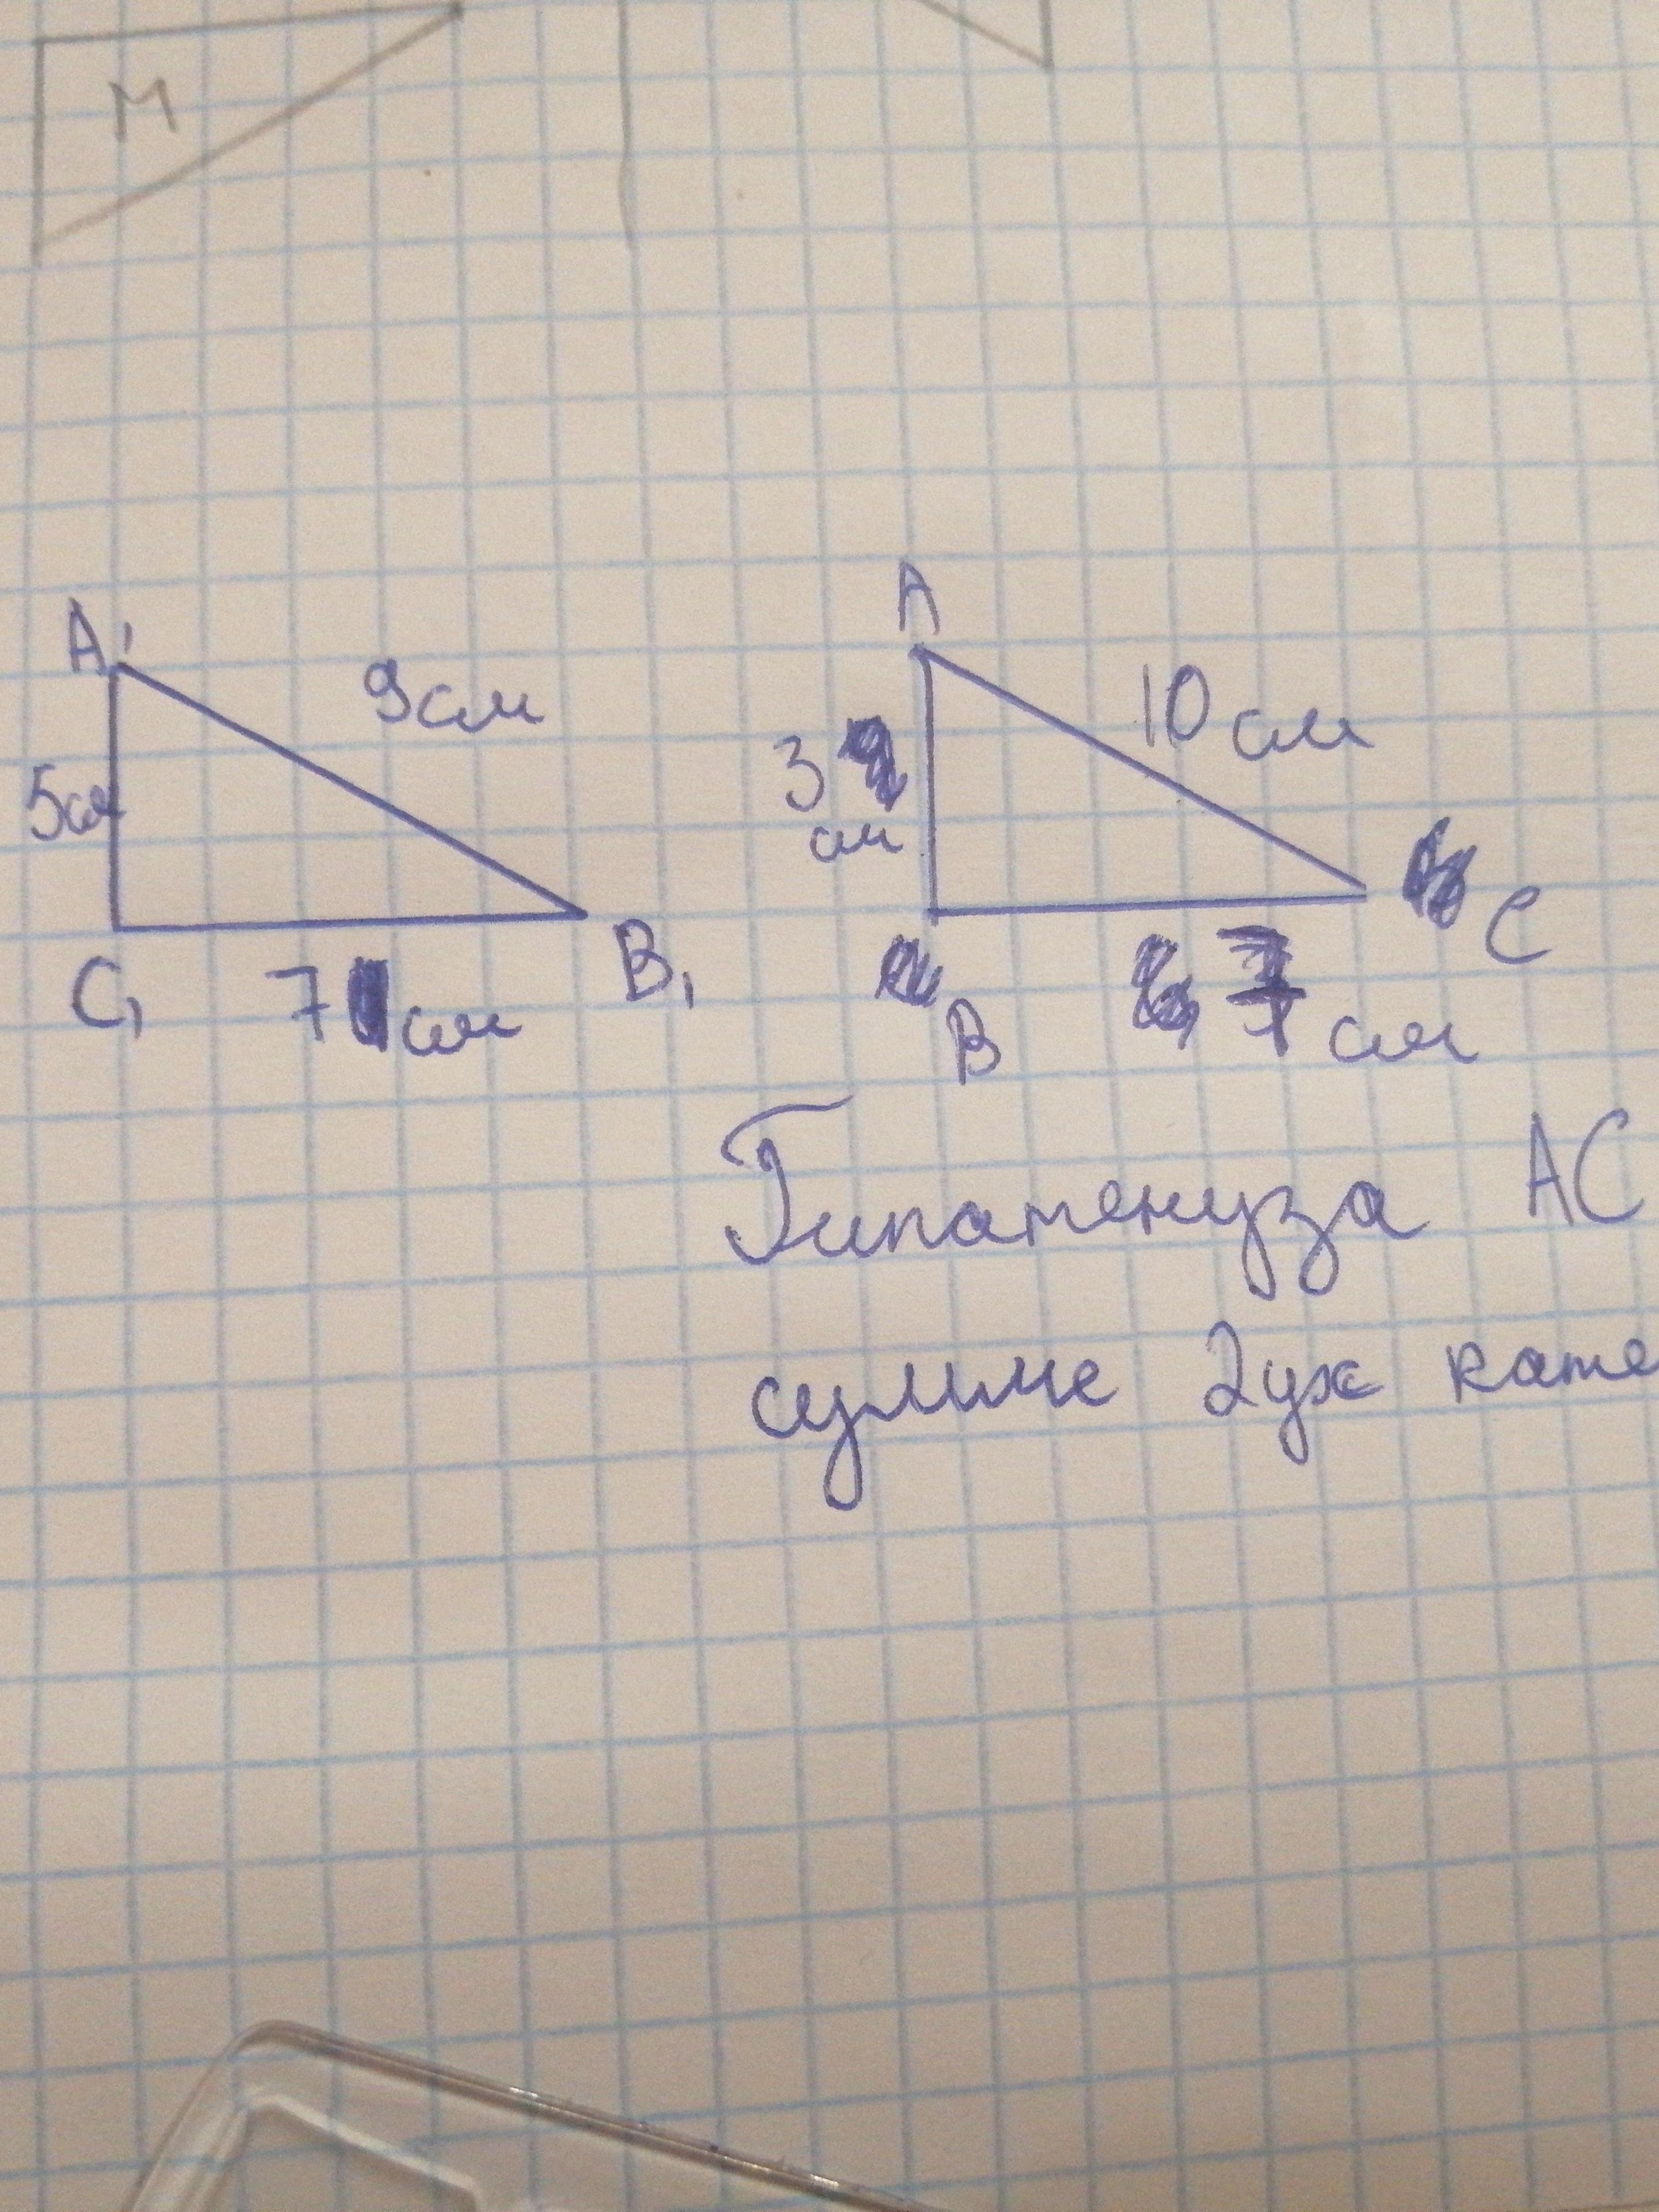 М
А₁
9см
5см
С₁
7см
В₁
А
10см
3
см
С
В
7
см
Гипатенуза АС
сумме 2ух кате